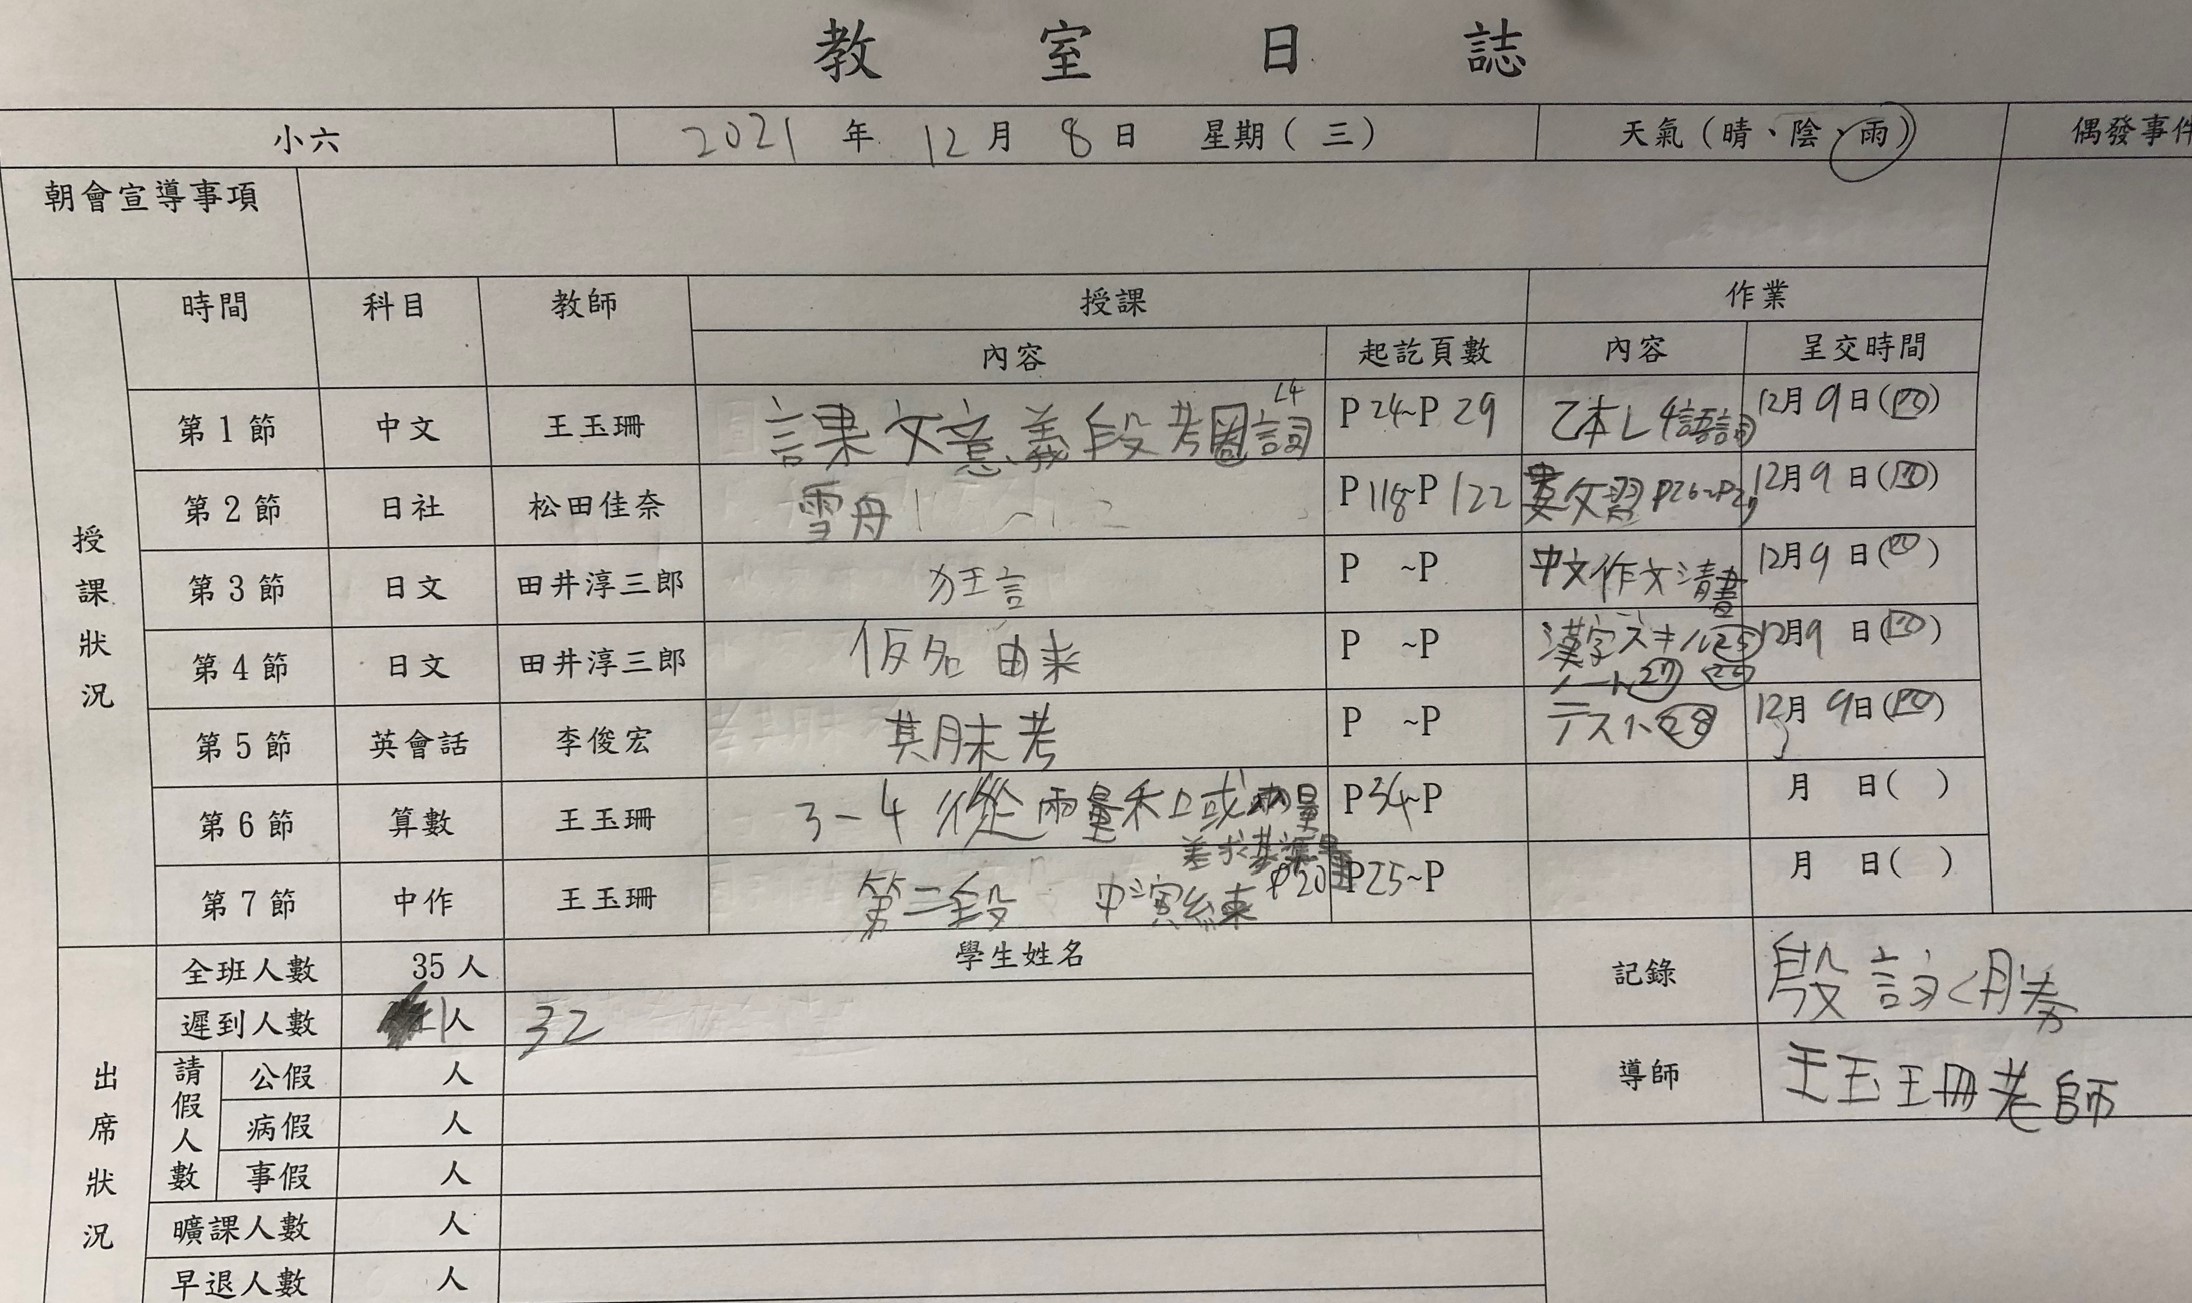 教室日誌
小六 2021年12月8日 星期(三) 天氣(晴、陰、雨) 偶發事件
朝會宣導事項
授課狀況 時間 科目 教師 授課 作業
內容 起訖頁數 內容 呈交時間
L4
第1節 中文 王玉珊 課文意義段考圈詞 P24~P29 乙本L4語詞 12月9日(四)
第2節 日社 松田佳奈 雪舟 P118~P122 英文習 12月9日(四)
第3節 日文 田井淳三郎 狂言 P ~P 中文作文清書 12月9日(四)
第4節 日文 田井淳三郎 仮名 由来 P ~P 漢字スキル25 12月9日(四)
ノート27 26
第5節 英會話 李俊宏 期末考 P ~P テスト28 12月9日(四)
第6節 算數 王玉珊 3-4從兩量和上或兩量 P34~P 月 日( )
差求基準量
第7節 中作 王玉珊 第二段 中演練 P20 P25~P 月 日( )
出席狀況 全班人數 35人 學生姓名 記錄 殷
遲到人數 1人 32
請假人數 公假 人 導師 王玉珊老師
病假 人
事假 人
曠課人數 人
早退人數 人